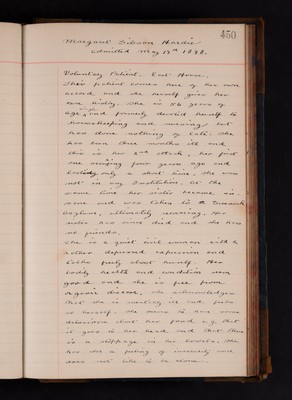 450
Margaret Gibson Hardie
admitted May 17th 1898.
Voluntary Patient. East House.
This patient comes here of her own
accord and she herself gives her
own history. She is 56 years of
age, single and formerly devoted herself to
housekeeping and nursing but
has done nothing of late. She
has been three months ill and
this is her 2nd attack, her first
one occurring four years ago and
lasting only a short time. She was
not in any Institution. At the
same time her sister became in-
sane and was taken to a
Asylum, ultimately recovering. Her
sister has since died and she has
no friends.
She is a quiet civil woman with a
rather depressed expression and
talks freely about herself. Her
bodily health and condition seem
good and she is free from
organic disease. She acknowledges
that she is mentally ill and feels
so herself. She seems to have some
delusions about her food e.g. that
it goes to her head and that there
is a stoppage in her bowels. She
has also a feeling of insecurity and
does not like to be alone.